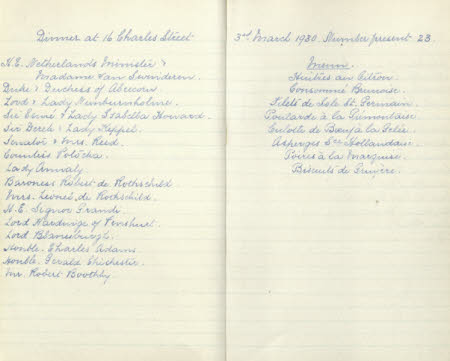 Dinner at 16 Charles Street
H.E. Netherlands Minister &
Madame Van Swinderen.
Duke & Duchess of Abercorn
Lord & Lady Nunburnholme.
Sir Esmé & Lady Isabella Howard.
Sir Derek & Lady Keppel.
Senator & Mrs. Reed.
Countess Potocka.
Lady Annaly
Baroness Robert de Rothschild
Mrs. Lionel de Rothschild.
H.E. Signor Grandi.
Lord Hardinge of Penshurst.
Lord Blanesburgh.
Honble. Charles Adams.
Honble. Gerald Chichester.
Mr. Robert Boothby.
3rd March 1930. Number present 23.
Menu.
Huitres au Citron.
Consommé Bernoise.
Filets de Sole St. Germain.
Poularde à la Piemontaise.
Culotte de Bœuf à la Gelée.
Asperges Sce Hollandaise.
Poires à la Marquise.
Biscuits de Gruyère.